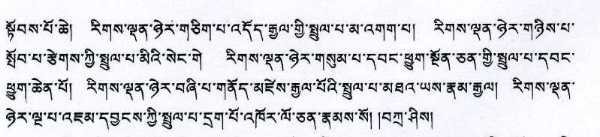 སྟོབས་པོ་ཆེ། རིགས་ལྡན་ཉེར་གཅིག་པ་འདོད་རྒྱལ་གྱི་སྤྲུལ་པ་མ་འགག་པ། རིགས་ལྡན་ཉེར་གཉིས་པ་
སྤོབ་པ་རྩེགས་ཀྱི་སྤྲུལ་པ་མིའི་སེང་གེ རིགས་ལྡན་ཉེར་གསུམ་པ་དབང་ཕྱུག་སྔོན་ཅན་གྱི་སྤྲུལ་པ་དབང་
ཕྱུག་ཆེན་པོ། རིགས་ལྡན་ཉེར་བཞི་པ་གནོད་མཛེས་རྒྱལ་པོའི་སྤྲུལ་པ་མཐའ་ཡས་རྣམ་རྒྱལ། རིགས་ལྡན་
ཉེར་ལྔ་པ་འཇམ་དབྱངས་ཀྱི་སྤྲུལ་པ་དྲག་པོ་འཁོར་ལོ་ཅན་རྣམས་སོ། །བཀྲ་ཤིས།